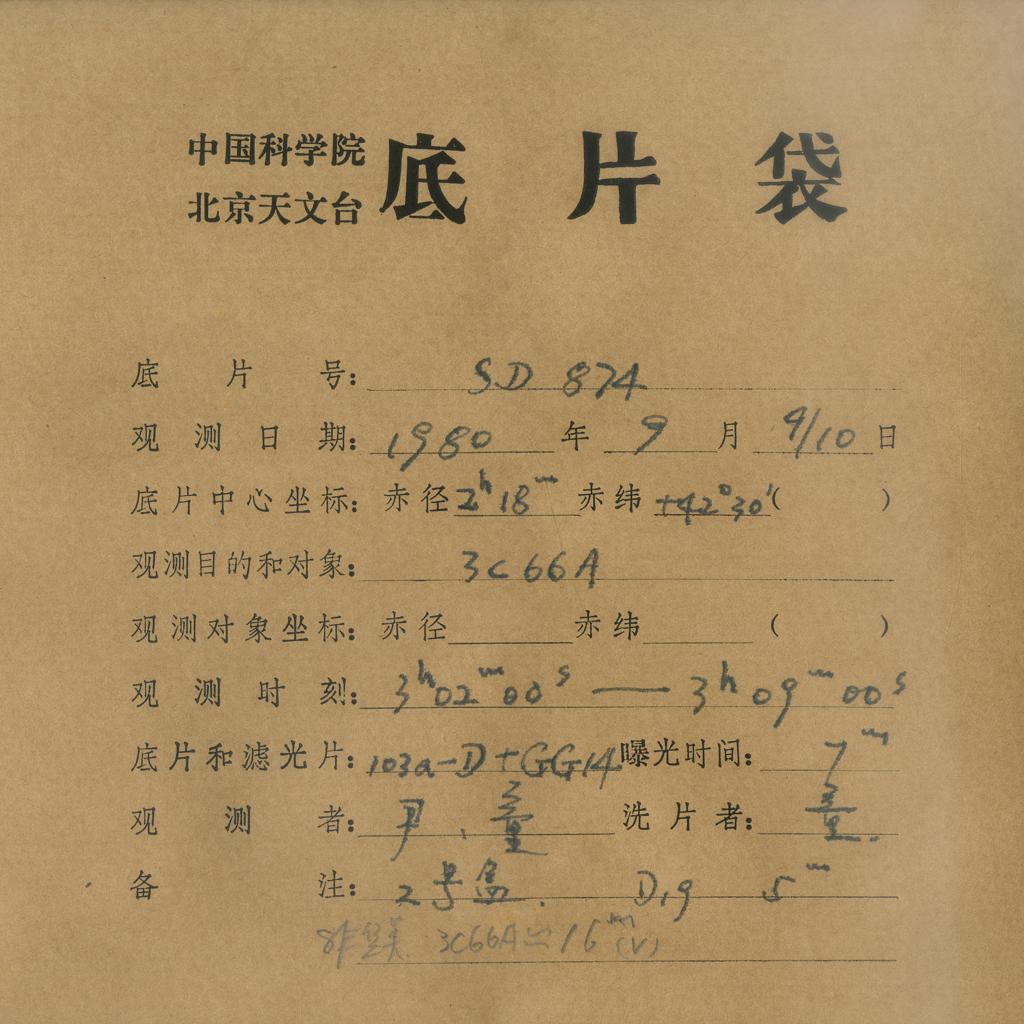 中国科学院
北京天文台
底片袋
底片号: SD 874
观测日期: 1980 年 9 月 9/10 日
底片中心坐标: 赤径 2h 18m 赤纬 +42°30′ ( )
观测目的和对象: 3C 66A
观测对象坐标: 赤径 赤纬 ( )
观测时刻: 3h 02m 00s — 3h 09m 00s
底片和滤光片: 103a-D+GG14 曝光时间: 7m
观测者: 尹、童 洗片者: 童.
备注: 2号盒. D19 5m
3C66A ≃ 16m (V)